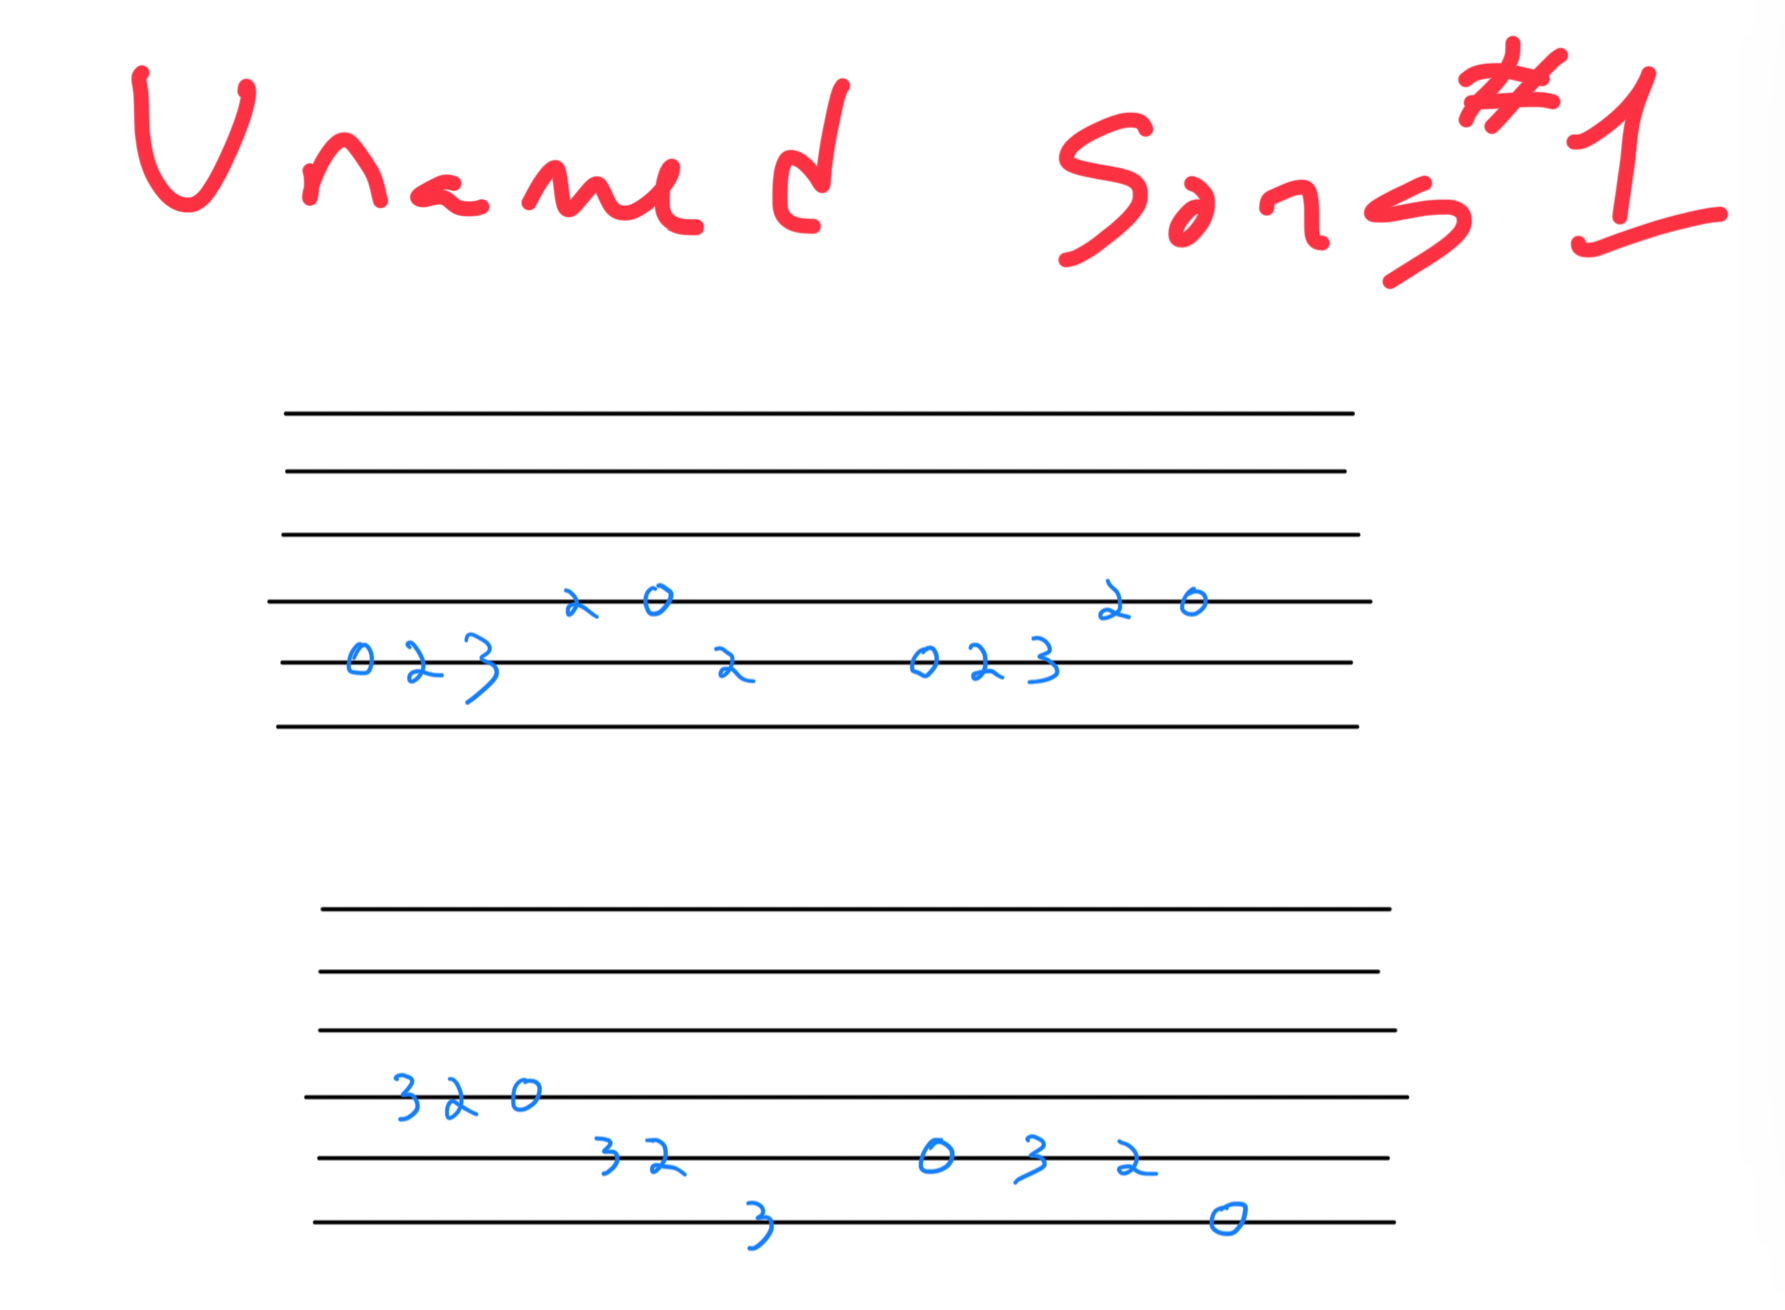 Unamed Song #1
2 0 2 0
0 2 3 2 0 2 3
3 2 0
3 2 0 3 2
3 0